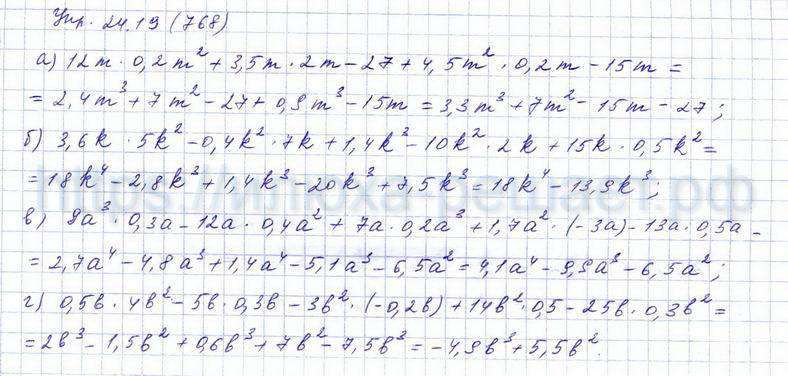 Упр. 24.19 (768)
а) 12m · 0,2m² + 3,5m · 2m − 27 + 4,5m² · 0,2m − 15m =
= 2,4m³ + 7m² − 27 + 0,9m³ − 15m = 3,3m³ + 7m² − 15m − 27;
б) 3,6k · 5k² − 0,4k² · 7k + 1,4k³ − 10k² · 2k + 15k · 0,5k² =
= 18k⁴ − 2,8k³ + 1,4k³ − 20k³ + 7,5k³ = 18k⁴ − 13,9k³;
в) 9a³ · 0,3a − 12a · 0,4a² + 7a · 0,2a³ + 1,7a² · (−3a) − 13a · 0,5a −
= 2,7a⁴ − 4,8a³ + 1,4a⁴ − 5,1a³ − 6,5a² = 4,1a⁴ − 9,9a³ − 6,5a²;
г) 0,5в · 4в² − 5в · 0,3в − 3в² · (−0,2в) + 14в² · 0,5 − 25в · 0,3в² =
= 2в³ − 1,5в² + 0,6в³ + 7в² − 7,5в³ = −4,9в³ + 5,5в².